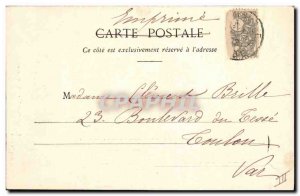 Imprimé
CARTE POSTALE
Ce côté est exclusivement réservé à l'adresse
Madame Brille
23. Boulevard du
Toulon
Var